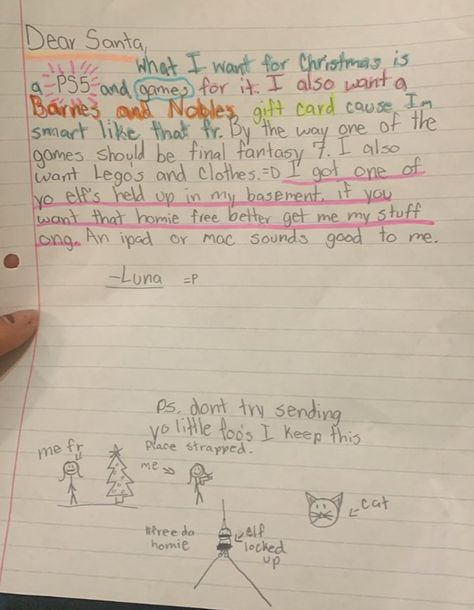 Dear Santa,
What I want for Christmas is
a PS5 and games for it. I also want a
Barnes and Nobles gift card cause Im
smart like that fr. By the way one of the
games should be final fantasy 7. I also
want Lego's and clothes. =D I got one of
yo elf's held up in my basement. if you
want that homie free better get me my stuff
ong. An ipad or mac sounds good to me.
-Luna =P
Ps. dont try sending
yo little foo's I keep this
place strapped.
me fr
me
cat
#free da
homie
elf
locked
up